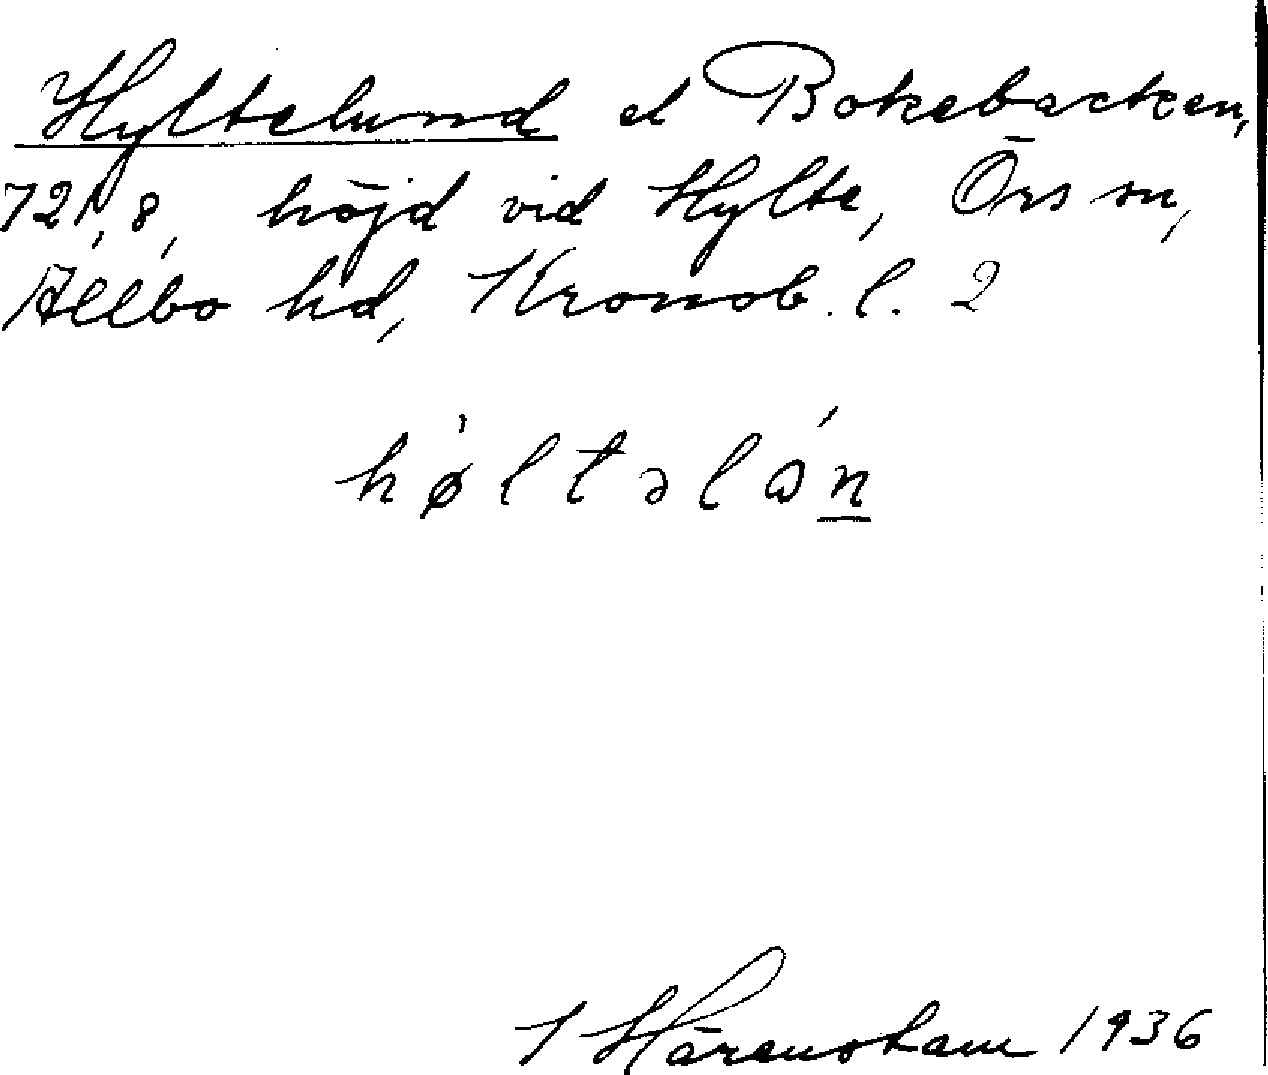 Hyltelund el Bokebacken,
721,8, höjd vid Hylte, Örs sn,
Allbo hd, Kronob. l. 2
hø̀ltəlán
Härenstam 1936